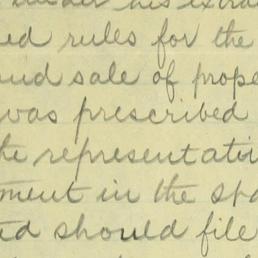 under his extra
ed rules for the
and sale of prope
was prescribed
the representati
ment in the spa
ed should file